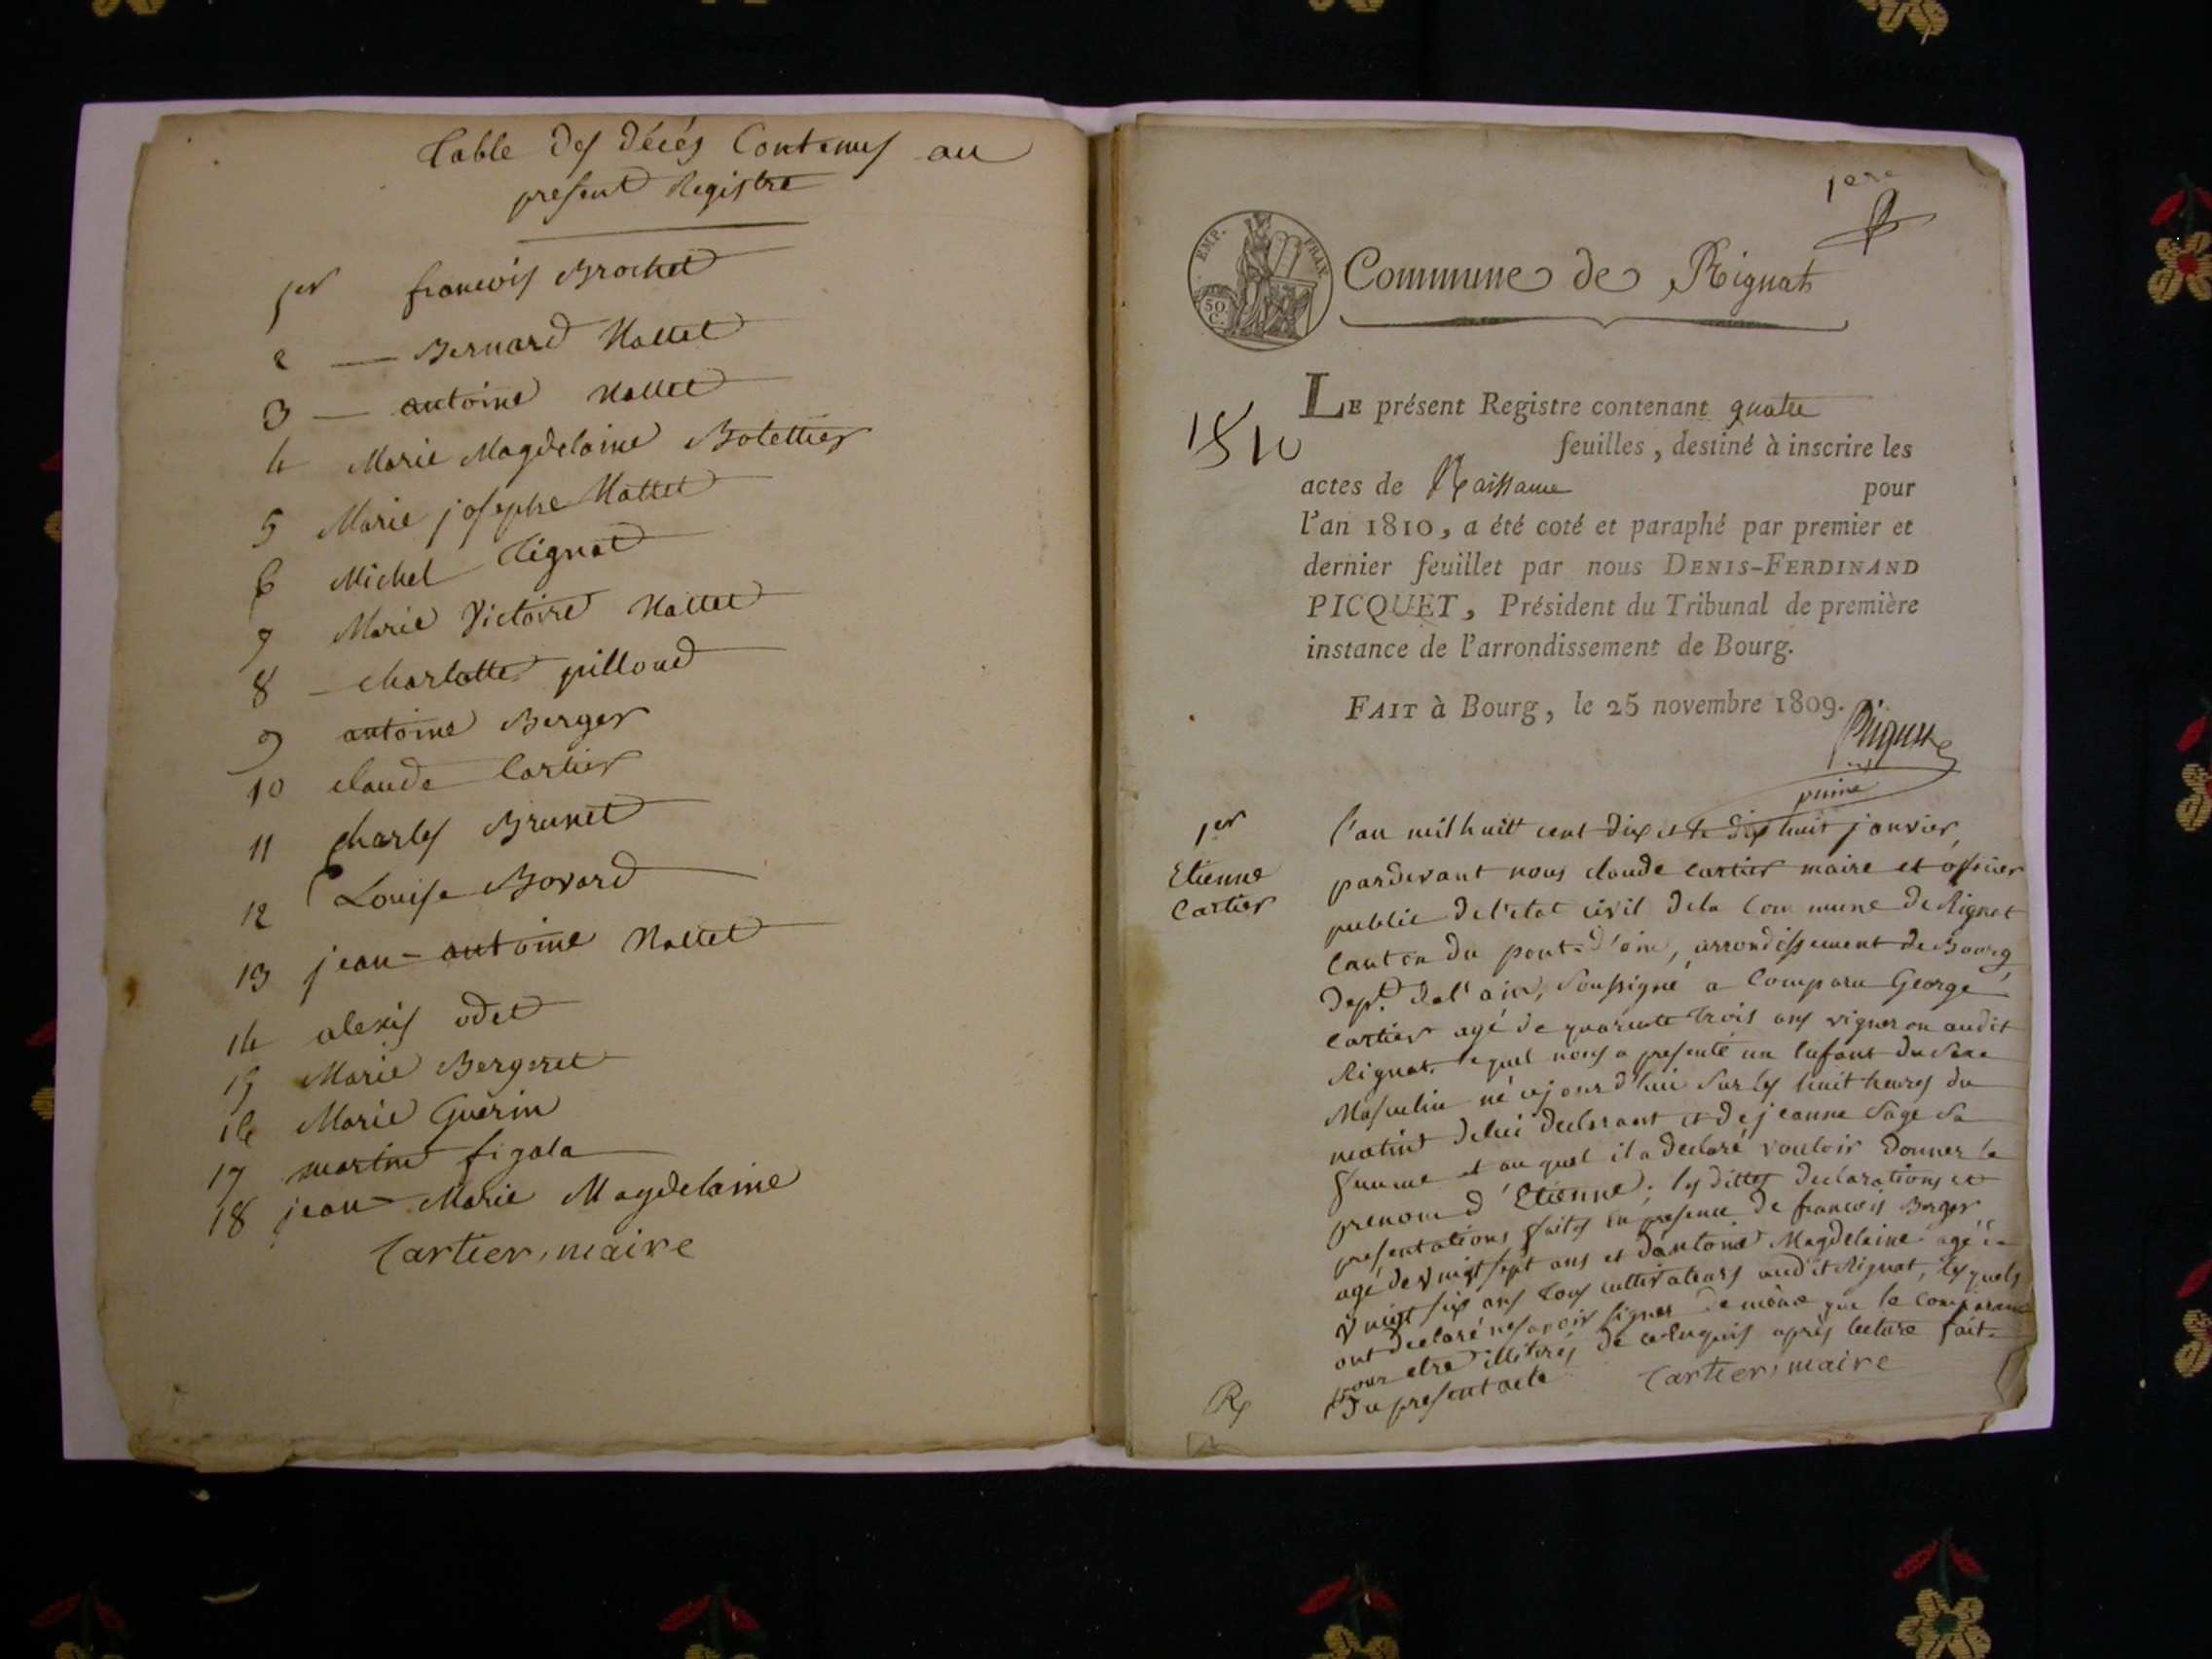 Table des décés Contenus au
present Registre
1er francois Brochet
2 — Bernard Nallet
3 — antoine Nallet
4 Marie Magdelaine Bolettier
5 Marie josephe Nallet
6 Michel Tignat
7 Marie Victoire Nallet
8 — charlotte pilloud
9 antoine Berger
10 claude Cartier
11 Charles Brunet
12 Louise Bovard
13 jean-antoine Nallet
14 alexis odet
15 Marie Bergeret
16 Marie Guerin
17 martine figala
18 jean-Marie Magdelaine
Cartier, maire
1ere
EMP. FRAN.
50
C.
Commune de Rignat
1810
LE présent Registre contenant quatre
feuilles, destiné à inscrire les
actes de Naissance pour
l'an 1810, a été coté et paraphé par premier et
dernier feuillet par nous DENIS-FERDINAND
PICQUET, Président du Tribunal de première
instance de l'arrondissement de Bourg.
FAIT à Bourg, le 25 novembre 1809.
Picquet
1er
Etienne
Cartier
l'an mil huit cent dix et le dix huit janvier,
pardevant nous claude cartier maire et officier
public de l'etat civil dela Commune de Rignat
Canton du pont-d'ain, arrondissement de Bourg
Dept. del'ain, Soussigné a Comparu George
Cartier agé de quarente trois ans vigneron audit
Rignat, lequel nous a presenté un Enfant du Sexe
Masculin né cejourd'hui Sur les huit heures du
matin delui declarant et de jeanne Sage Sa
femme et auquel il a declaré vouloir Donner le
prenom d'Etienne; les dittes declarations et
presentations faites En presence de francois Berger
agé de vingt sept ans et d'antoine Magdelaine agé de
vingt six ans tous cultivateurs audit Rignat, lesquels
ont declaré ne savoir signer de même que le comparant
pour etre illitérés de ce Enquis après lecture fait
Du present acte Cartier, maire